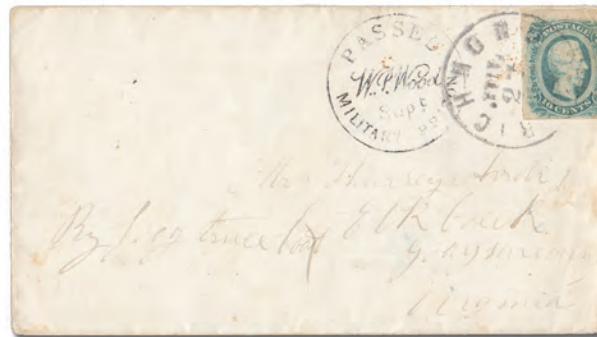 PASSED
W.P. Wood
Supt
MILITARY PR
RICHMON
POSTAGE
10 CENTS
Mr
By flag truce boat Elk Creek
Grayson
Virginia